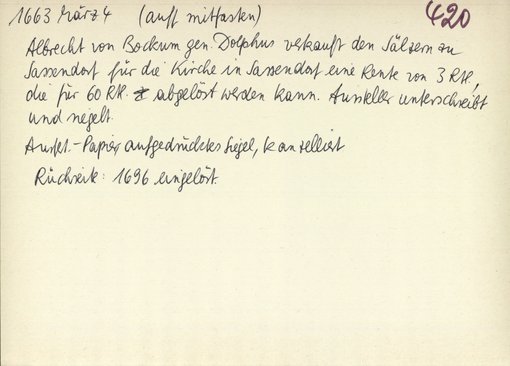 1663 März 4 (auff mitfasten) 420
Albrecht von Bockum gen. Dolphus verkauft den Sälzern zu
Sassendorf für die Kirche in Sassendorf eine Rente von 3 Rtl.,
die für 60 Rtl. abgelöst werden kann. Aussteller unterschreibt
und siegelt.
Ausf.-Papier aufgedrücktes Siegel, kanzelliert
Rückseite: 1696 eingelöst.